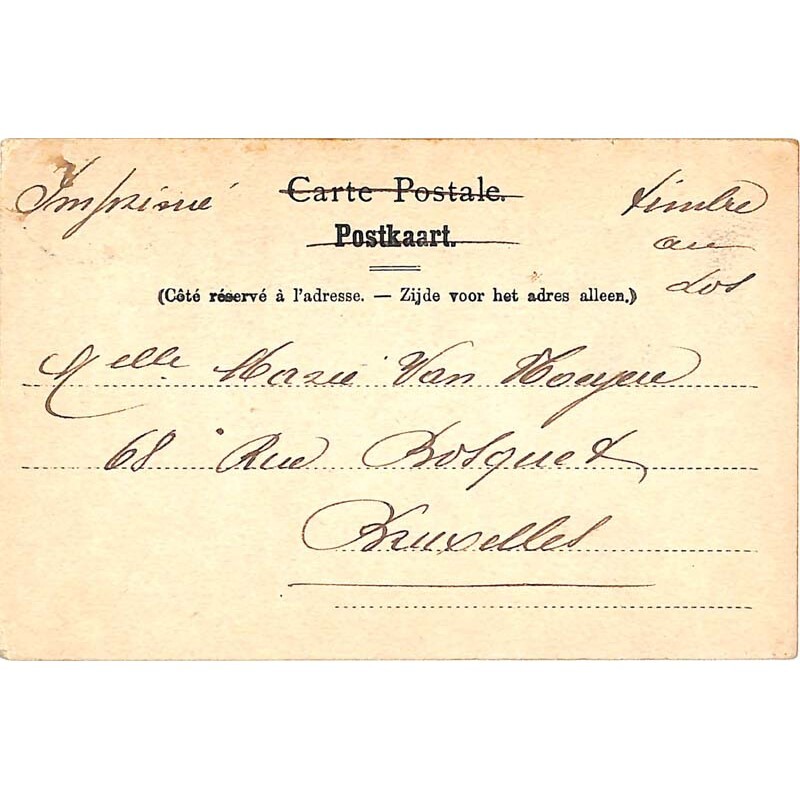 Imprimé
Carte Postale.
Postkaart.
timbre
au
dos
(Côté réservé à l'adresse. — Zijde voor het adres alleen.)
Melle Marie Van
68 Rue Bosquet
Bruxelles